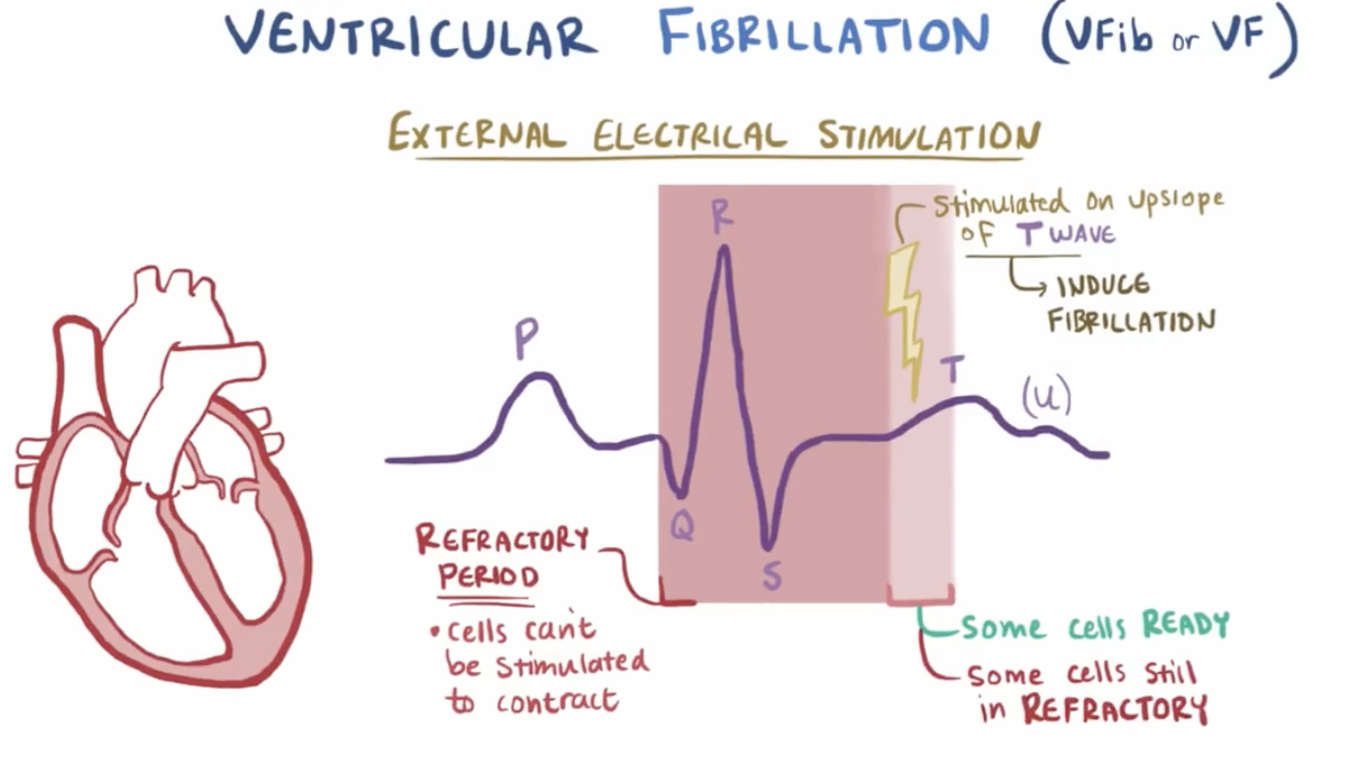 VENTRICULAR FIBRILLATION (VFib or VF)
EXTERNAL ELECTRICAL STIMULATION
R
Stimulated on upslope
of T WAVE
INDUCE
FIBRILLATION
P
T
(U)
Q
S
REFRACTORY
PERIOD
• cells can't
be stimulated
to contract
Some cells READY
Some cells still
in REFRACTORY